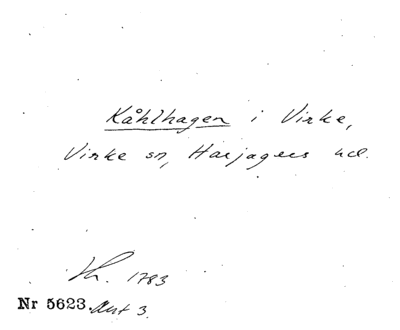 Kåhlhagen i Virke,
Virke sn, Harjagers hd.
Lh. 1783
Nr 5623. Avt 3.